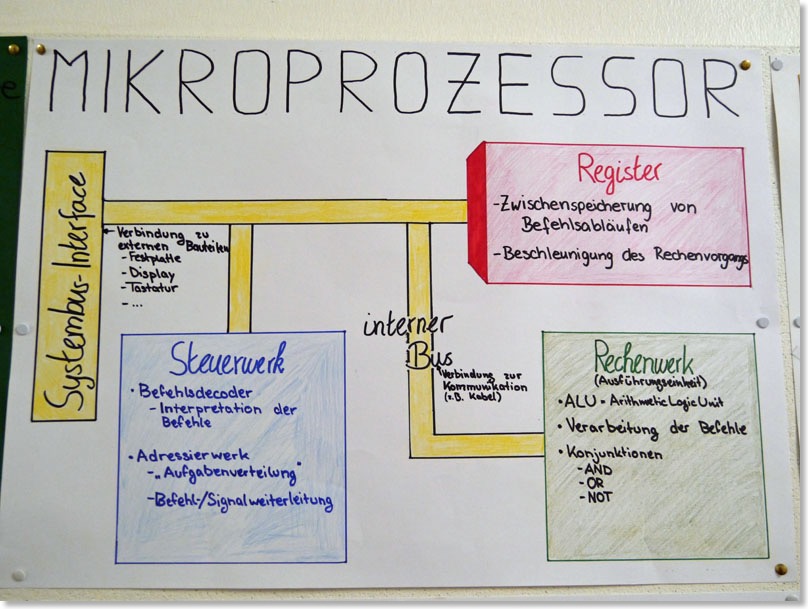 MIKROPROZESSOR
Systembus-Interface
Verbindung zu
externen Bauteilen
- Festplatte
- Display
- Tastatur
- ...
Register
- Zwischenspeicherung von
Befehlsabläufen
- Beschleunigung des Rechenvorgangs
interner
Bus
Verbindung zur
Kommunikation
(z.B. Kabel)
Steuerwerk
• Befehlsdecoder
- Interpretation der
Befehle
• Adressierwerk
- „Aufgabenverteilung"
- Befehl-/Signalweiterleitung
Rechenwerk
(Ausführungseinheit)
• ALU = Arithmetic Logic Unit
• Verarbeitung der Befehle
• Konjunktionen
- AND
- OR
- NOT